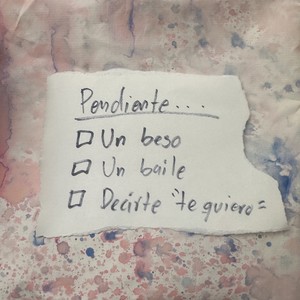 Pendiente...
□ Un beso
□ Un baile
□ Decirte "te quiero"